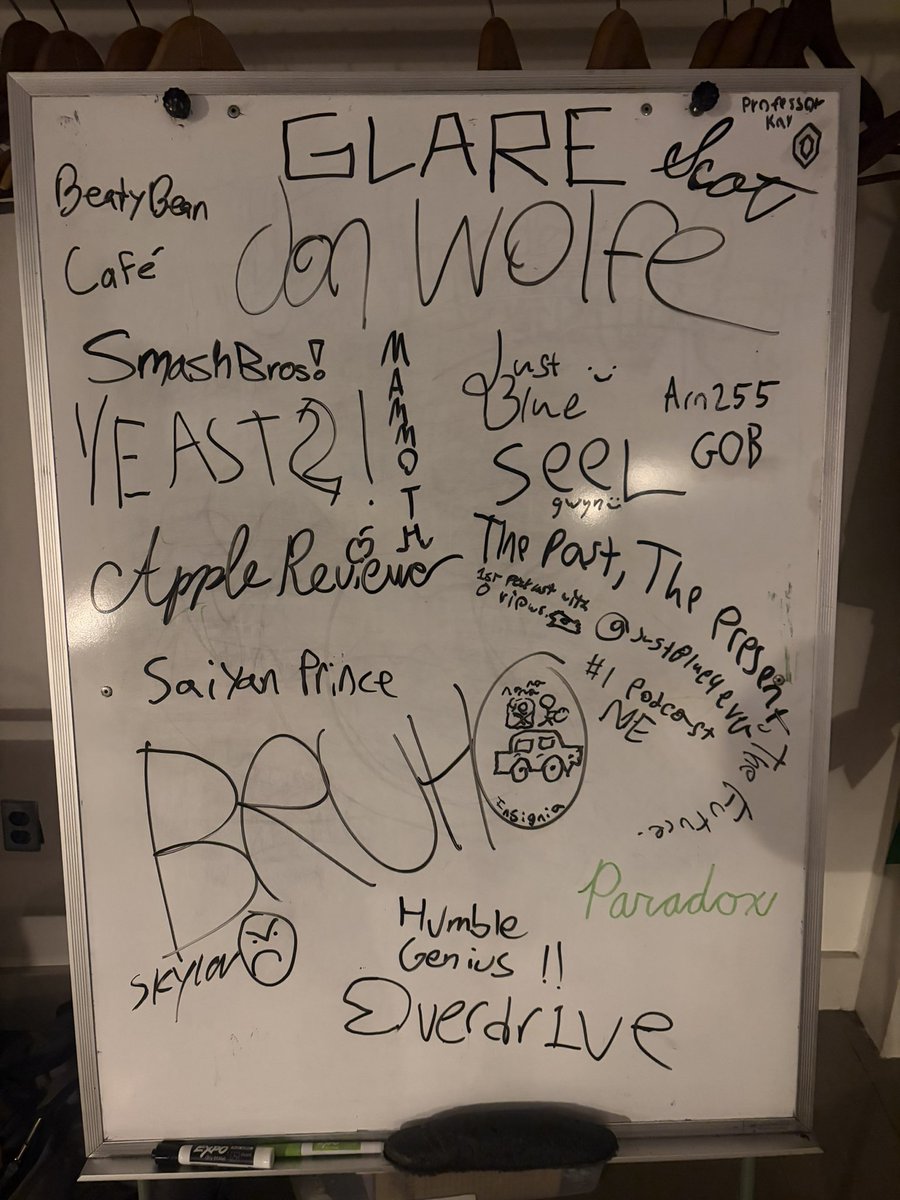 Professor
GLARE
Scot
BeatyBean
Café
don Wolfe
SmashBros!
MAMMOTH
Just
Blue
Arn255
GOB
YEAST2!
SeeL
gwyn
Apple Reviewer
The Past, The Present, The Future.
1st podcast with
0 views.
@justBlue4ever
#1 Podcast
ME
Saiyan Prince
BRUH
Insignia
Paradox
Humble
Genius !!
Skylar
Overdr1ve
EXPO